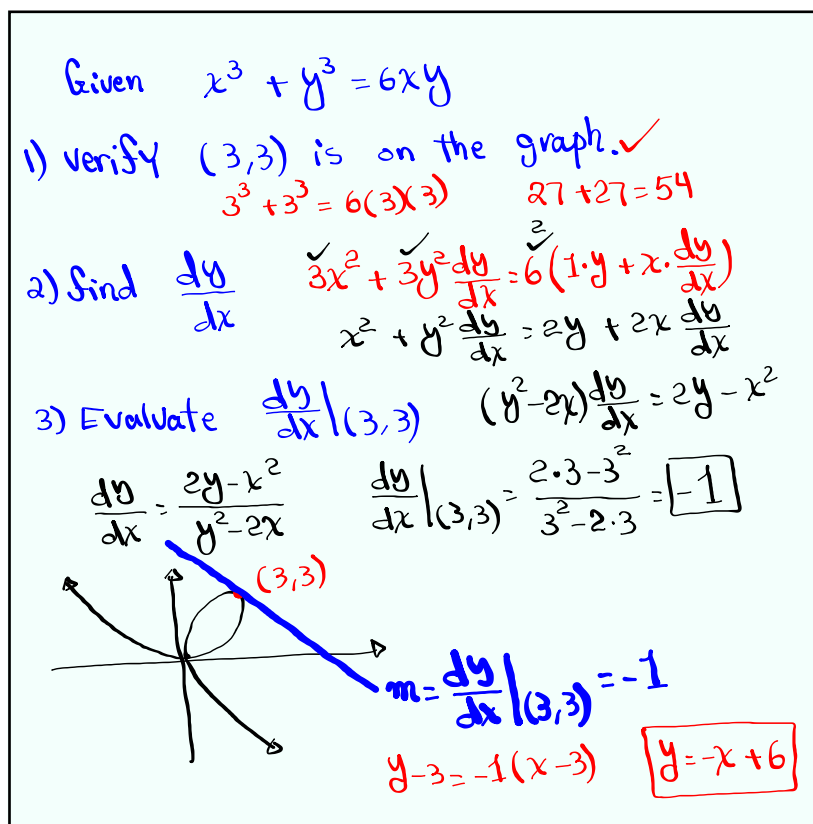 Given x³ + y³ = 6xy
1) verify (3,3) is on the graph. ✓
3³ + 3³ = 6(3)(3) 27 + 27 = 54
2) find dy/dx 3x² + 3y² dy/dx = 6(1·y + x·dy/dx)
2
x² + y² dy/dx = 2y + 2x dy/dx
3) Evaluate dy/dx|(3,3) (y² - 2x) dy/dx = 2y - x²
dy/dx = (2y - x²)/(y² - 2x) dy/dx|(3,3) = (2·3 - 3²)/(3² - 2·3) = -1
(3,3)
m = dy/dx|(3,3) = -1
y - 3 = -1(x - 3) y = -x + 6